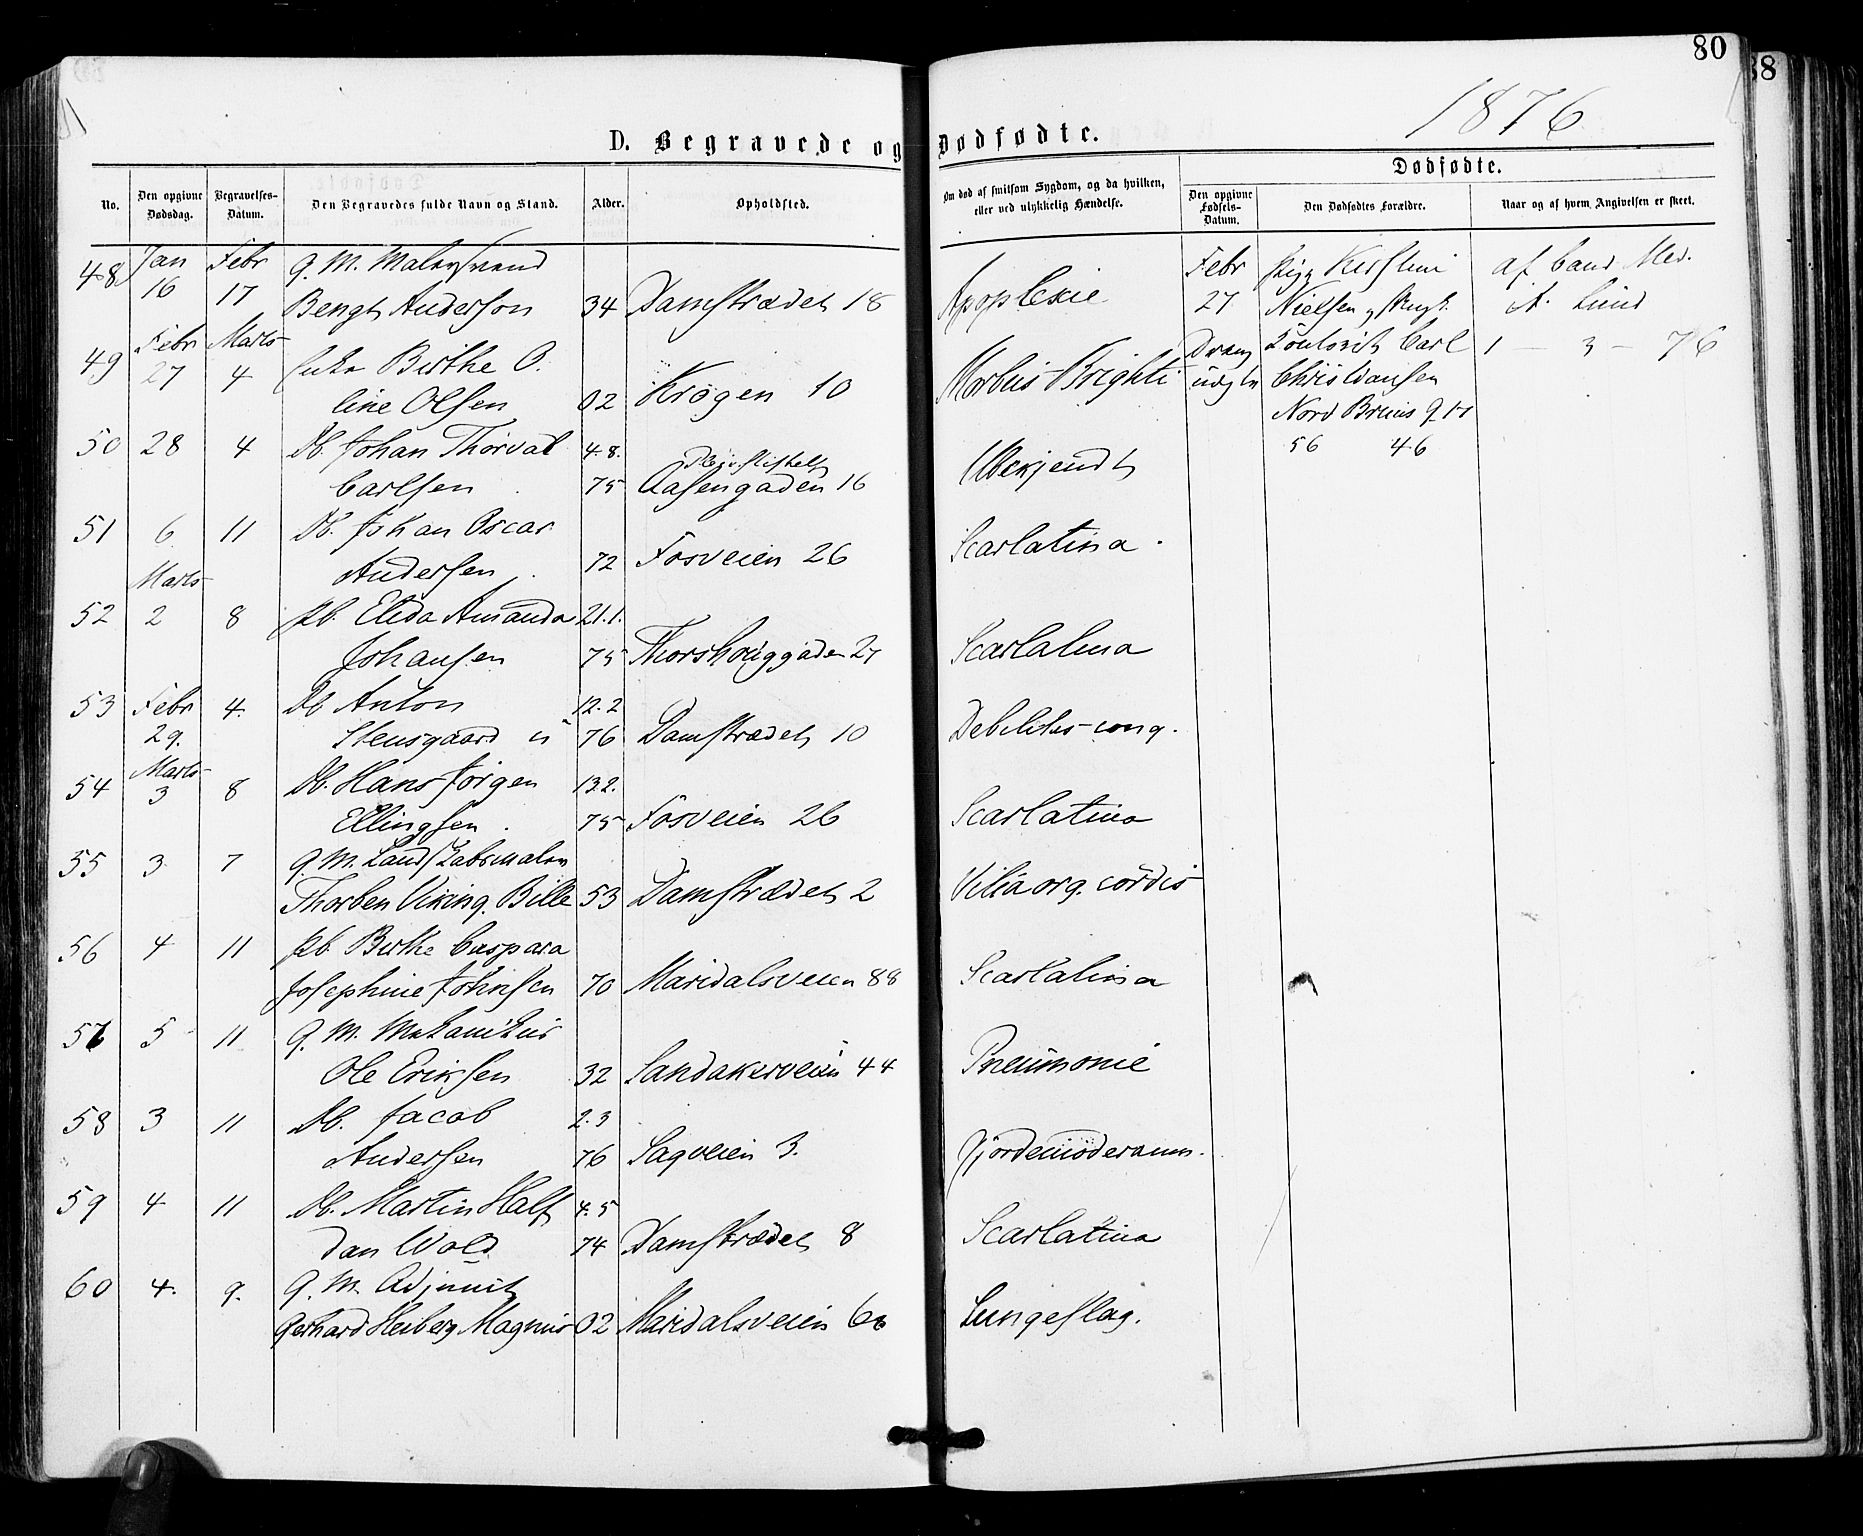 80
88
1876
D. Begravede og Dødfødte.
No.
Den opgivne Dødsdag.
Begravelses-Datum.
Den Begravedes fulde Navn og Stand.
Alder.
Opholdsted.
Om død af smitsom Sygdom, og da hvilken, eller ved ulykkelig Hændelse.
Dødfødte.
Den opgivne Fødsels-Datum.
Den Dødfødtes Forældre.
Naar og af hvem Angivelsen er skeet.
48 Jan Febr g. M.
16 17 Bengt Anderson 34 Damstrædet 18 Apoplexie
49 Febr Marts Birthe O.
27 4 line Olsen 02 Krogen 10 Morbus Brighti
50 28 4 Db. Johan Thorval 4.8.
Carlsen 75 Aasengaden 16 Ubekjendt
51 6 11 Db. Johan Oscar
Andersen 72 Fosveien 26 Scarlatina.
Marts
52 2 8 Pb. Elida Amanda 21.1.
Johansen 75 Thorshouggaden 27 Scarlatina
53 Febr 4. Db Anton 12.2
29. Stensgaard 76 Damstrædet 10 Debilitas cong.
54 Marts
3 8 Db. Hans Jørgen 13.2.
Ellingsen. 75 Fosveien 26 Scarlatina
55 3 7 g. M.
Thorben Viking Bille 53 Damstrædet 2 Vitia org. cordis
56 4 11 Pb Birthe Caspara
Josephine Johnsen 70 Maridalsveien 88 Scarlatina
57 5 11 g. M. Mekanikus
Ole Eriksen 32 Sandakerveien 44 Pneumonie
58 3 11 Db. Jacob 2.3
Andersen 76 Sagveien 3.
59 4 11 Db. Martin Half 4.5
dan Wold 74 Damstrædet 8 Scarlatina
60 4. 9. g. M. Adjunct
Gerhard Heiberg Magnus 02 Maridalsveien Lungeslag.
Febr Pige Kirstine af Cand Med.
27 Nielsen A. Lund
Dreng Carl 1 — 3 — 76
Christiansen
56 46